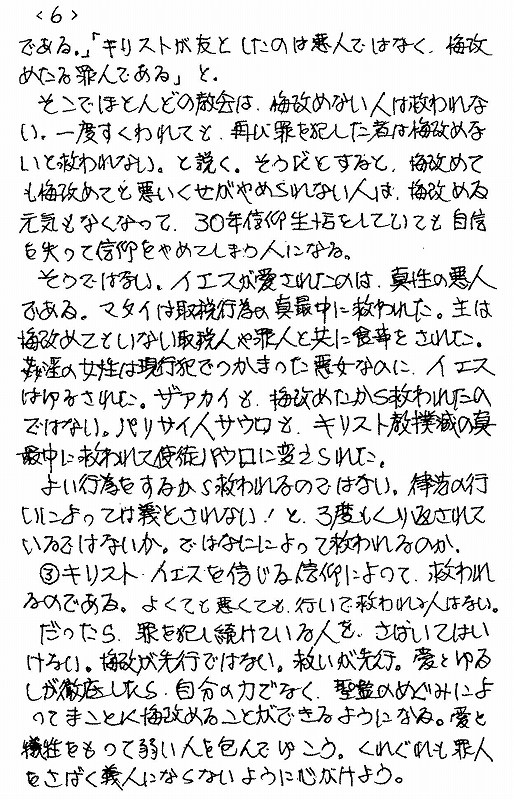 <6>
である。」「キリストが友としたのは悪人ではなく、悔改
めたる罪人である」と。
そこでほとんどの教会は、悔改めない人は救われな
い。一度すくわれても、再び罪を犯した者は悔改めな
いと救われない。と説く。そうだとすると、悔改めて
も悔改めても悪いくせがやめられない人は、悔改める
元気もなくなって、30年信仰生活をしていても自信
を失って信仰をやめてしまう人になる。
そうではない。イエスが愛されたのは、真性の悪人
である。マタイは取税行為の真最中に救われた。主は
悔改めてもいない取税人や罪人と共に食事をされた。
姦淫の女性は現行犯でつかまった悪女なのに、イエス
はゆるされた。ザアカイも、悔改めたから救われたの
ではない。パリサイ人サウロも、キリスト教撲滅の真
最中に救われて使徒パウロに変えられた。
よい行為をするから救われるのではない。律法の行
いによっては義とされない!と、3度もくり返されて
いるではないか。ではなにによって救われるのか。
③キリスト・イエスを信じる信仰によって、救われ
るのである。よくても悪くても、行いで救われる人はない。
だったら、罪を犯し続けている人を、さばいてはい
けない。悔改が先行ではない。救いが先行。愛とゆる
しが徹底したら、自分の力でなく、聖霊のめぐみによ
ってまことに悔改めることができるようになる。愛と
犠牲をもって弱い人を包んでゆこう。くれぐれも罪人
をさばく義人にならないように心がけよう。